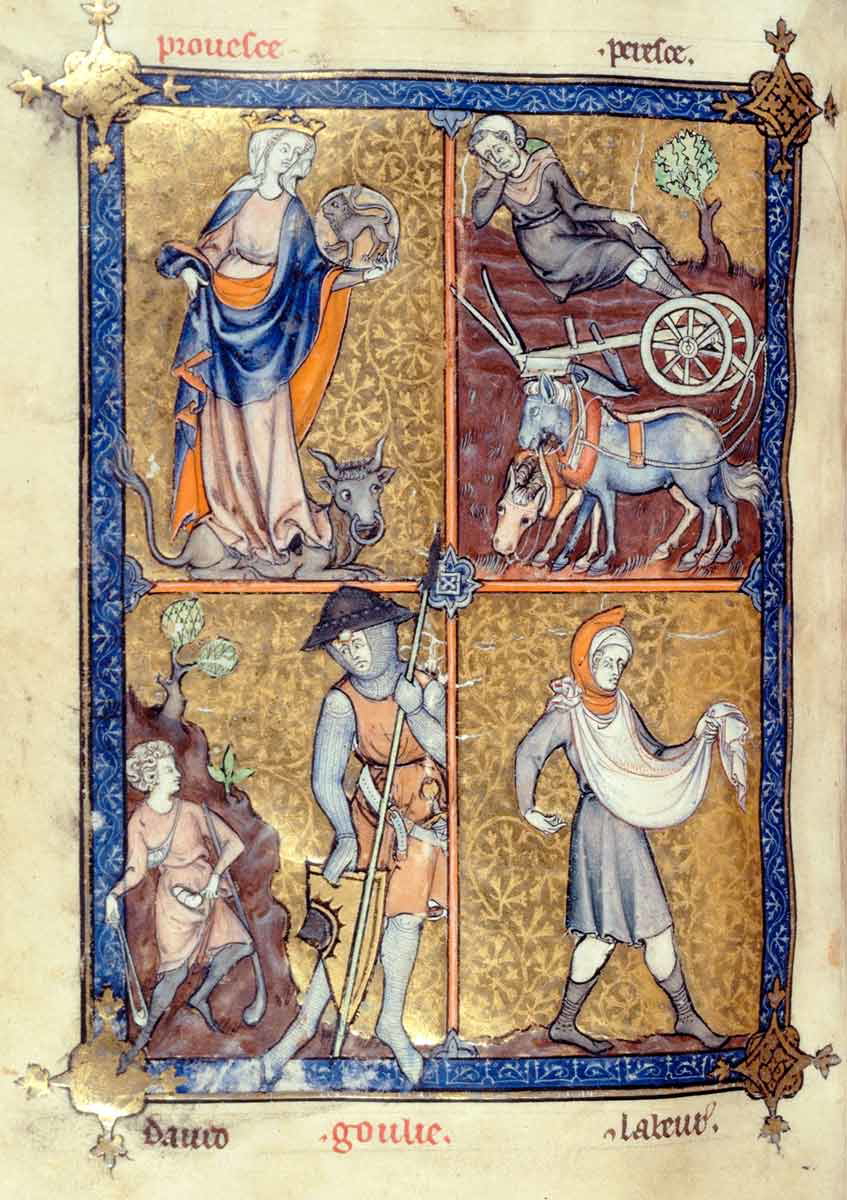 prouesce .peresce.
dauid .goulie. .labeur.